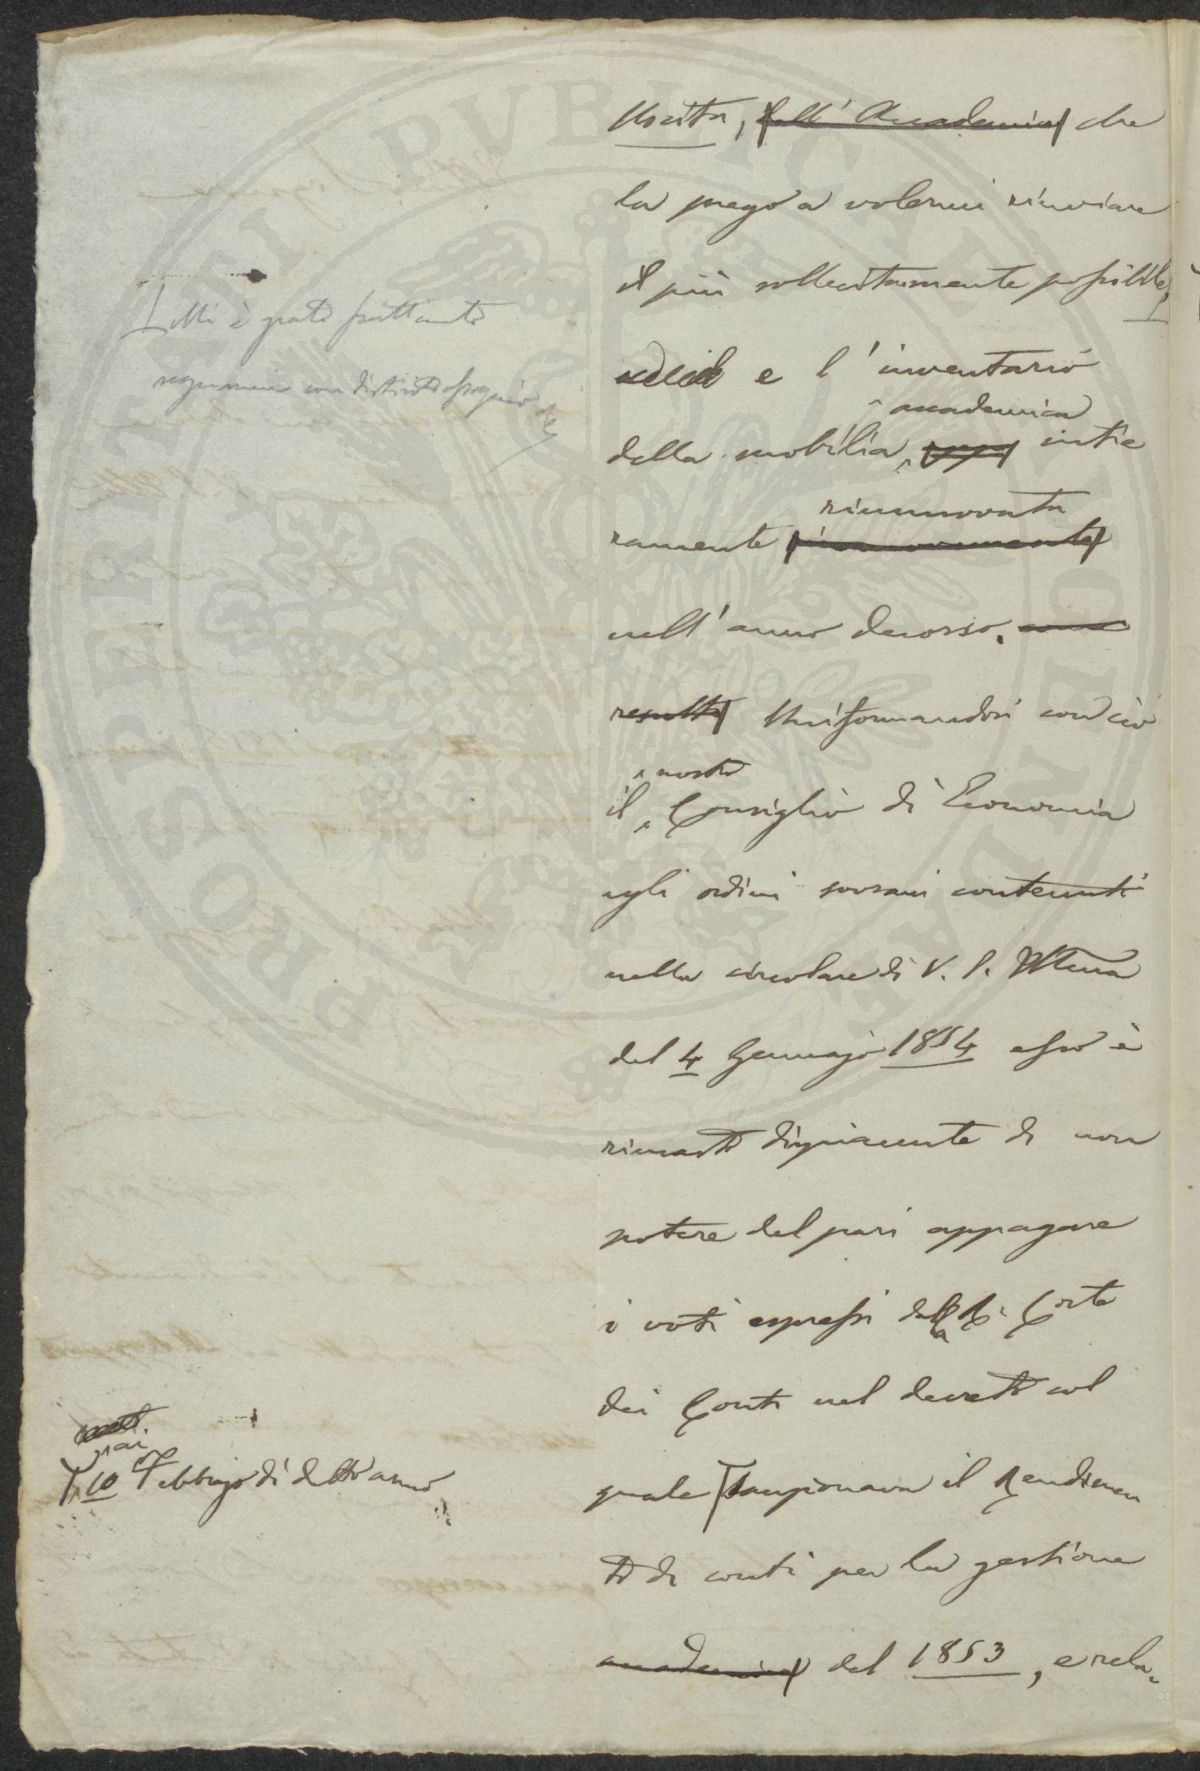 Uscita, dell' Accademia che
la prego a volermi rinviare
il più sollecitamente possibile,
e l'inventario
accademica
della mobilia intie
rinnovata
ramente
nell'anno decorso. come
resulta Uniformandosi con ciò
nostro
il Consiglio di Economia
agli ordini sovrani contenuti
nella circolare di V. S. Illma
del 4 Gennajo 1854 esso è
rimasto dispiacente di non
potere del pari appagare
i voti espressi dalla R. Corte
dei Conti nel decreto col
quale sanzionava il Rendimen
to di conti per la gestione
accademica del 1853, e rela-
Mi è grato frattanto
segnarmi con distinto ossequio
10 Febbrajo di detto anno